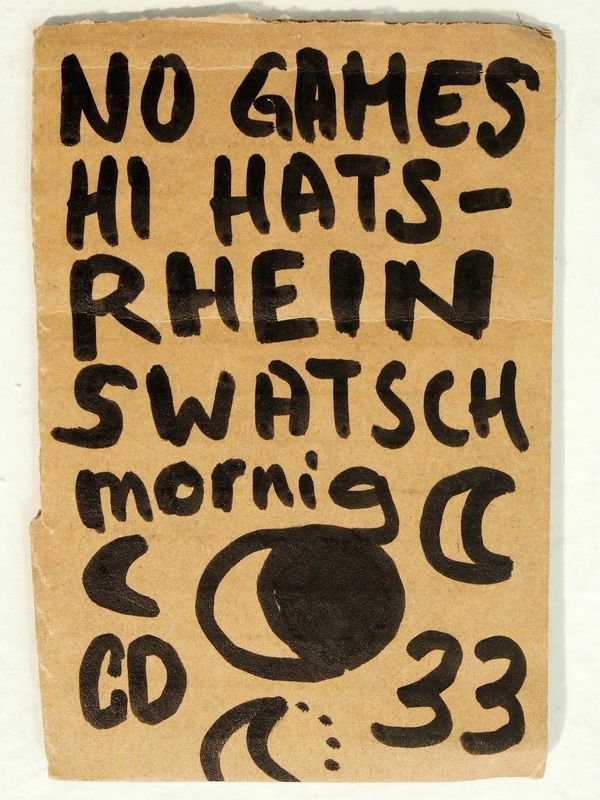 NO GAMES
HI HATS-
RHEIN
SWATSCH
mornig
CD 33